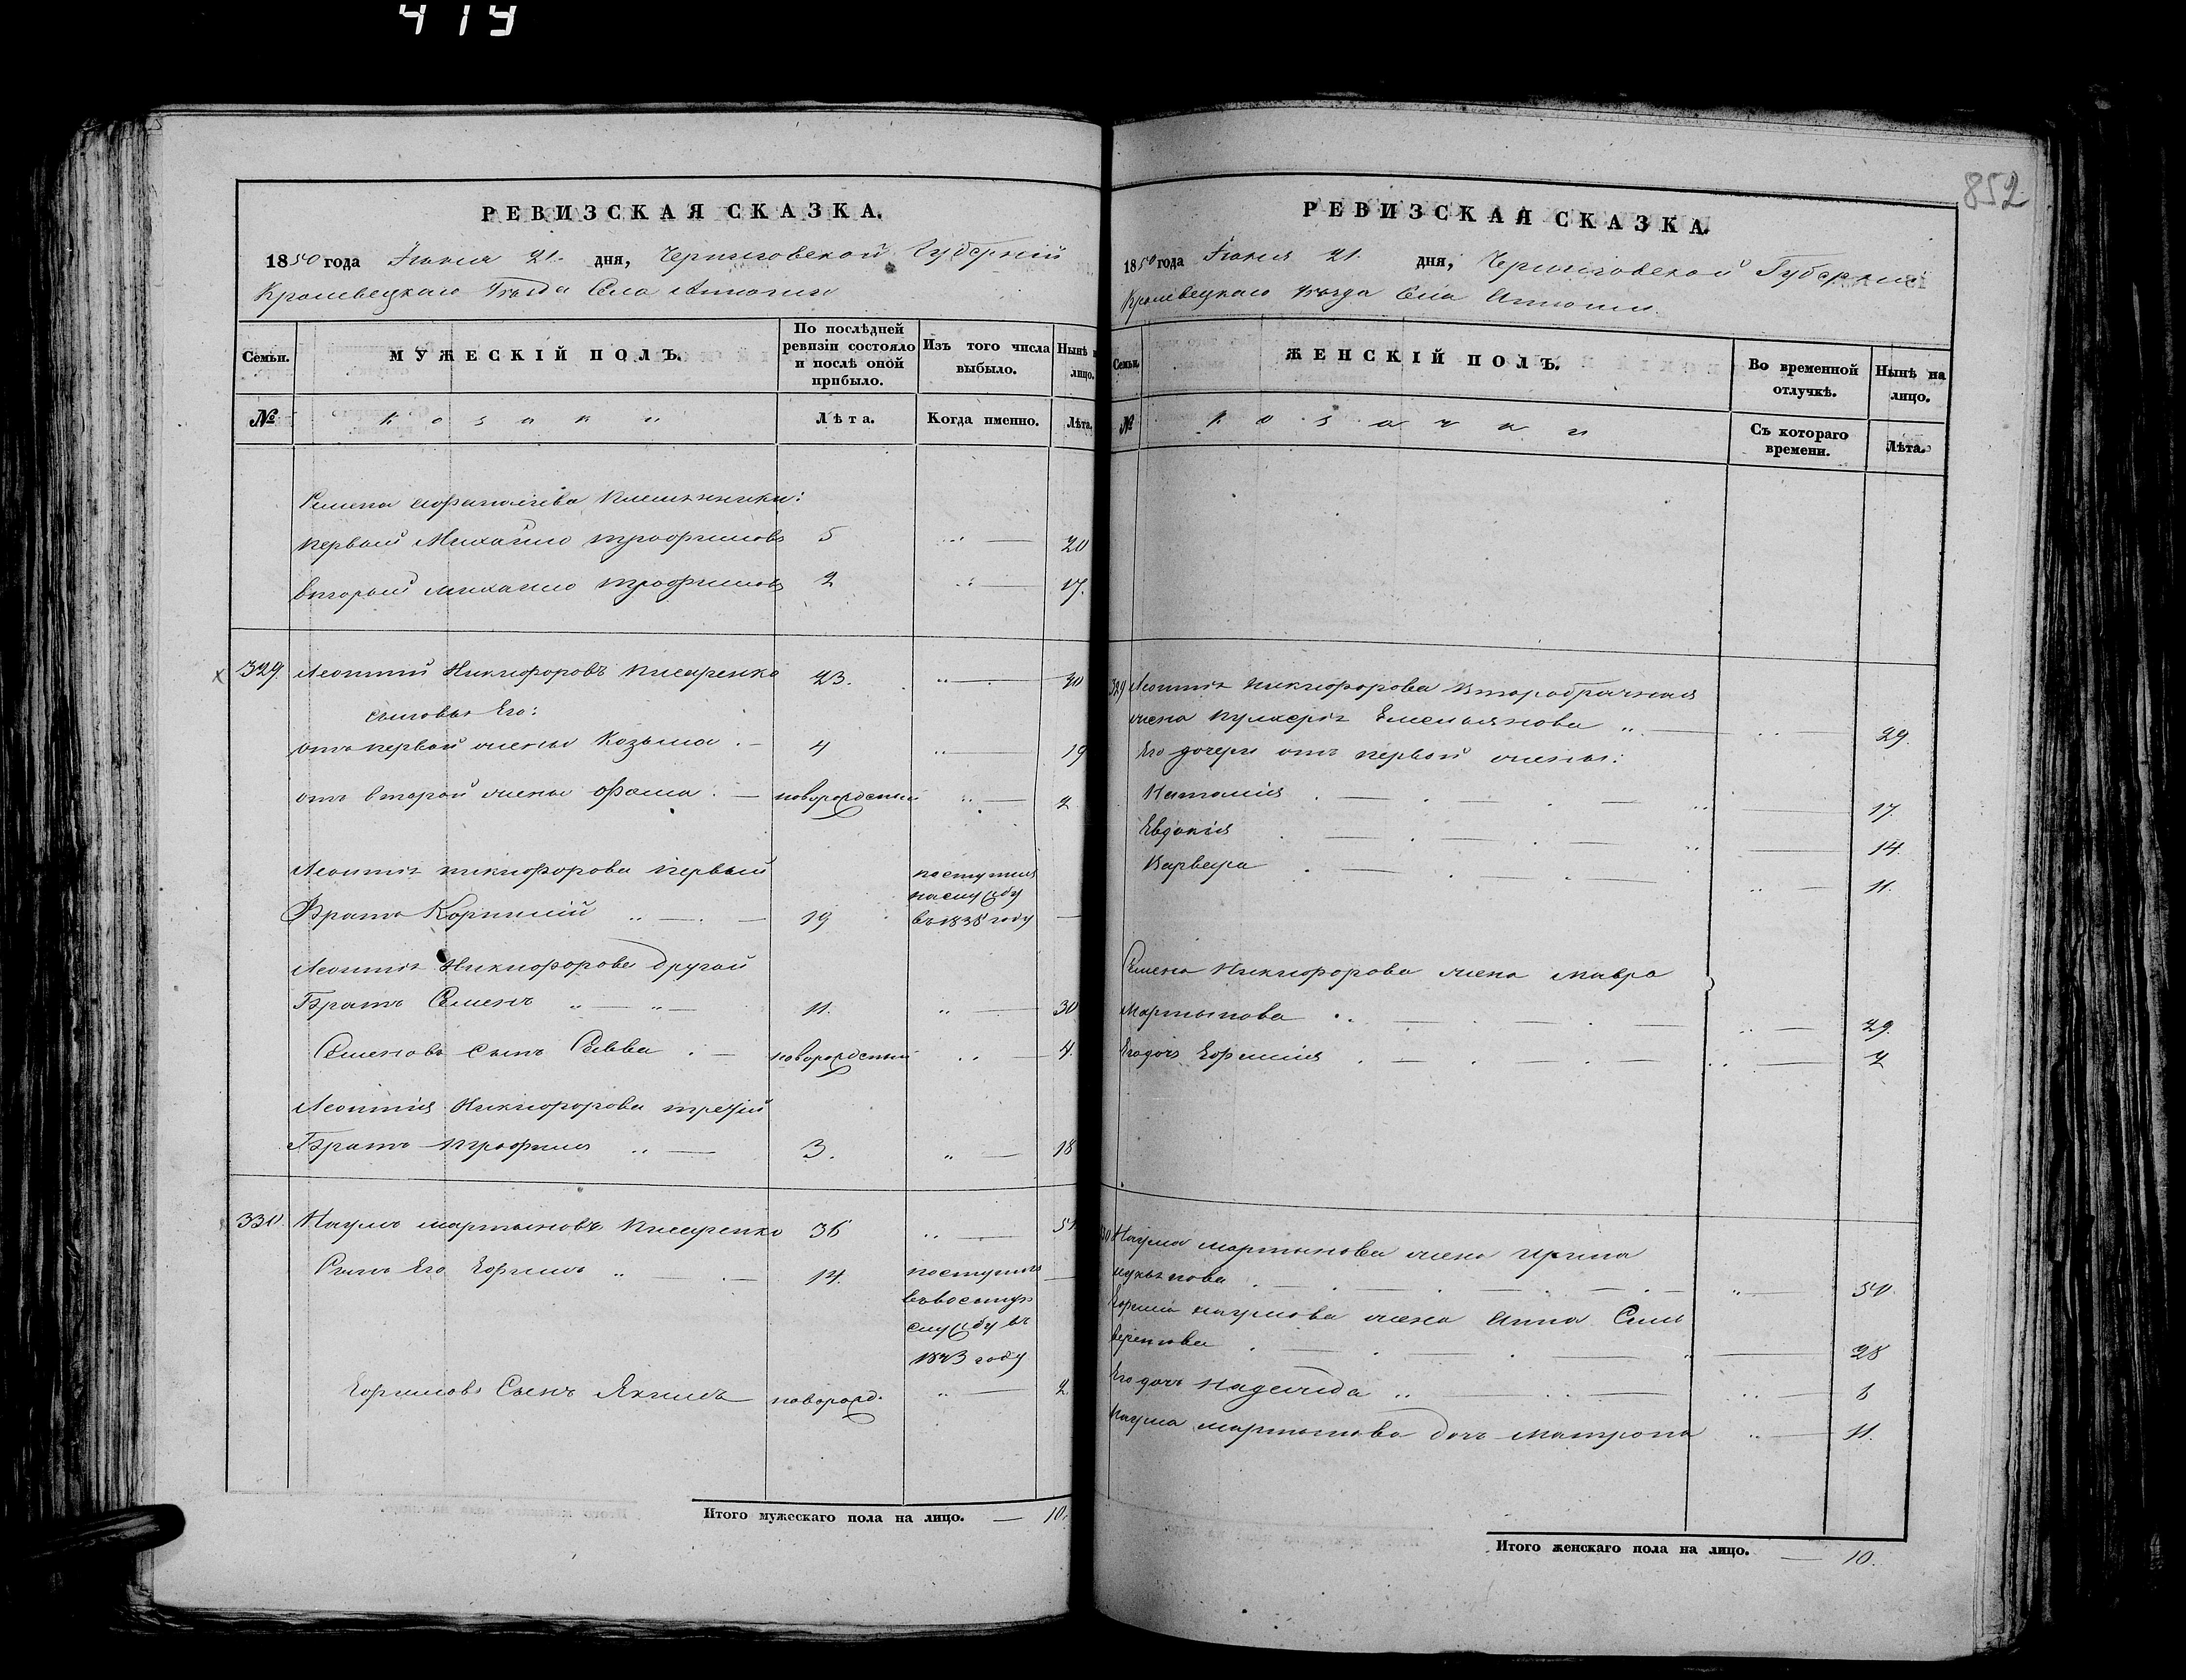 419
852
РЕВИЗСКАЯ СКАЗКА.
1850 года Іюня 21. дня, Черниговской Губерніи
Кролевецкаго Уѣзда Села
Семьи. МУЖЕСКІЙ ПОЛЪ. По послѣдней ревизіи состояло и послѣ оной прибыло. Изъ того числа выбыло. Нынѣ лицо.
№ козаки Лѣта. Когда именно. Лѣта.
Семена племянники:
первый Михайло Трофимовъ 5 20
вторый Михайло Трофимовъ 2 17.
329. Леонтий Никифоровъ Писаренко 23. 
сыновья Его:
отъ первой жены Козьма 4 19
отъ второй жены Фома новорожденный 2
Леонтія Никифорова первый поступилъ
на службу
Братъ Корнилій 19 въ 1838 году
Леонтія Никифорова другой
Братъ Семенъ 11. 30
Семеновъ сынъ Савва новорожденный 4.
Леонтія Никифорова третій
Братъ Трофимъ 3. 18
330. Наумъ Мартыновъ Писаренко 36 51.
Сынъ Его Ефимъ 14. поступилъ
службу въ
1843 году
Ефимовъ Сынъ Якимъ новорожд. 2
Итого мужескаго пола на лицо. — 10.
РЕВИЗСКАЯ СКАЗКА.
1850 года Іюня 21. дня, Черниговской Губерніи
Кролевецкаго Уѣзда Села
Семьи. ЖЕНСКІЙ ПОЛЪ. Во временной отлучкѣ. Нынѣ на лицо.
№ козачки Съ котораго времени. Лѣта.
329 Леонтія Никифорова второбрачная
жена Пулхерія Емельянова 29.
Его дочери отъ первой жены:
Наталия 17.
Евдокія 14.
Варвара 11.
Семена Никифорова жена Мавра
Мартынова 29.
Его дочь Ефимія 2
330 Наума Мартынова жена Ирина
50.
Ефима Наумова жена Анна
28
Его дочь Надежда 6
Наума Мартынова дочь Матрона 11.
Итого женскаго пола на лицо. — 10.